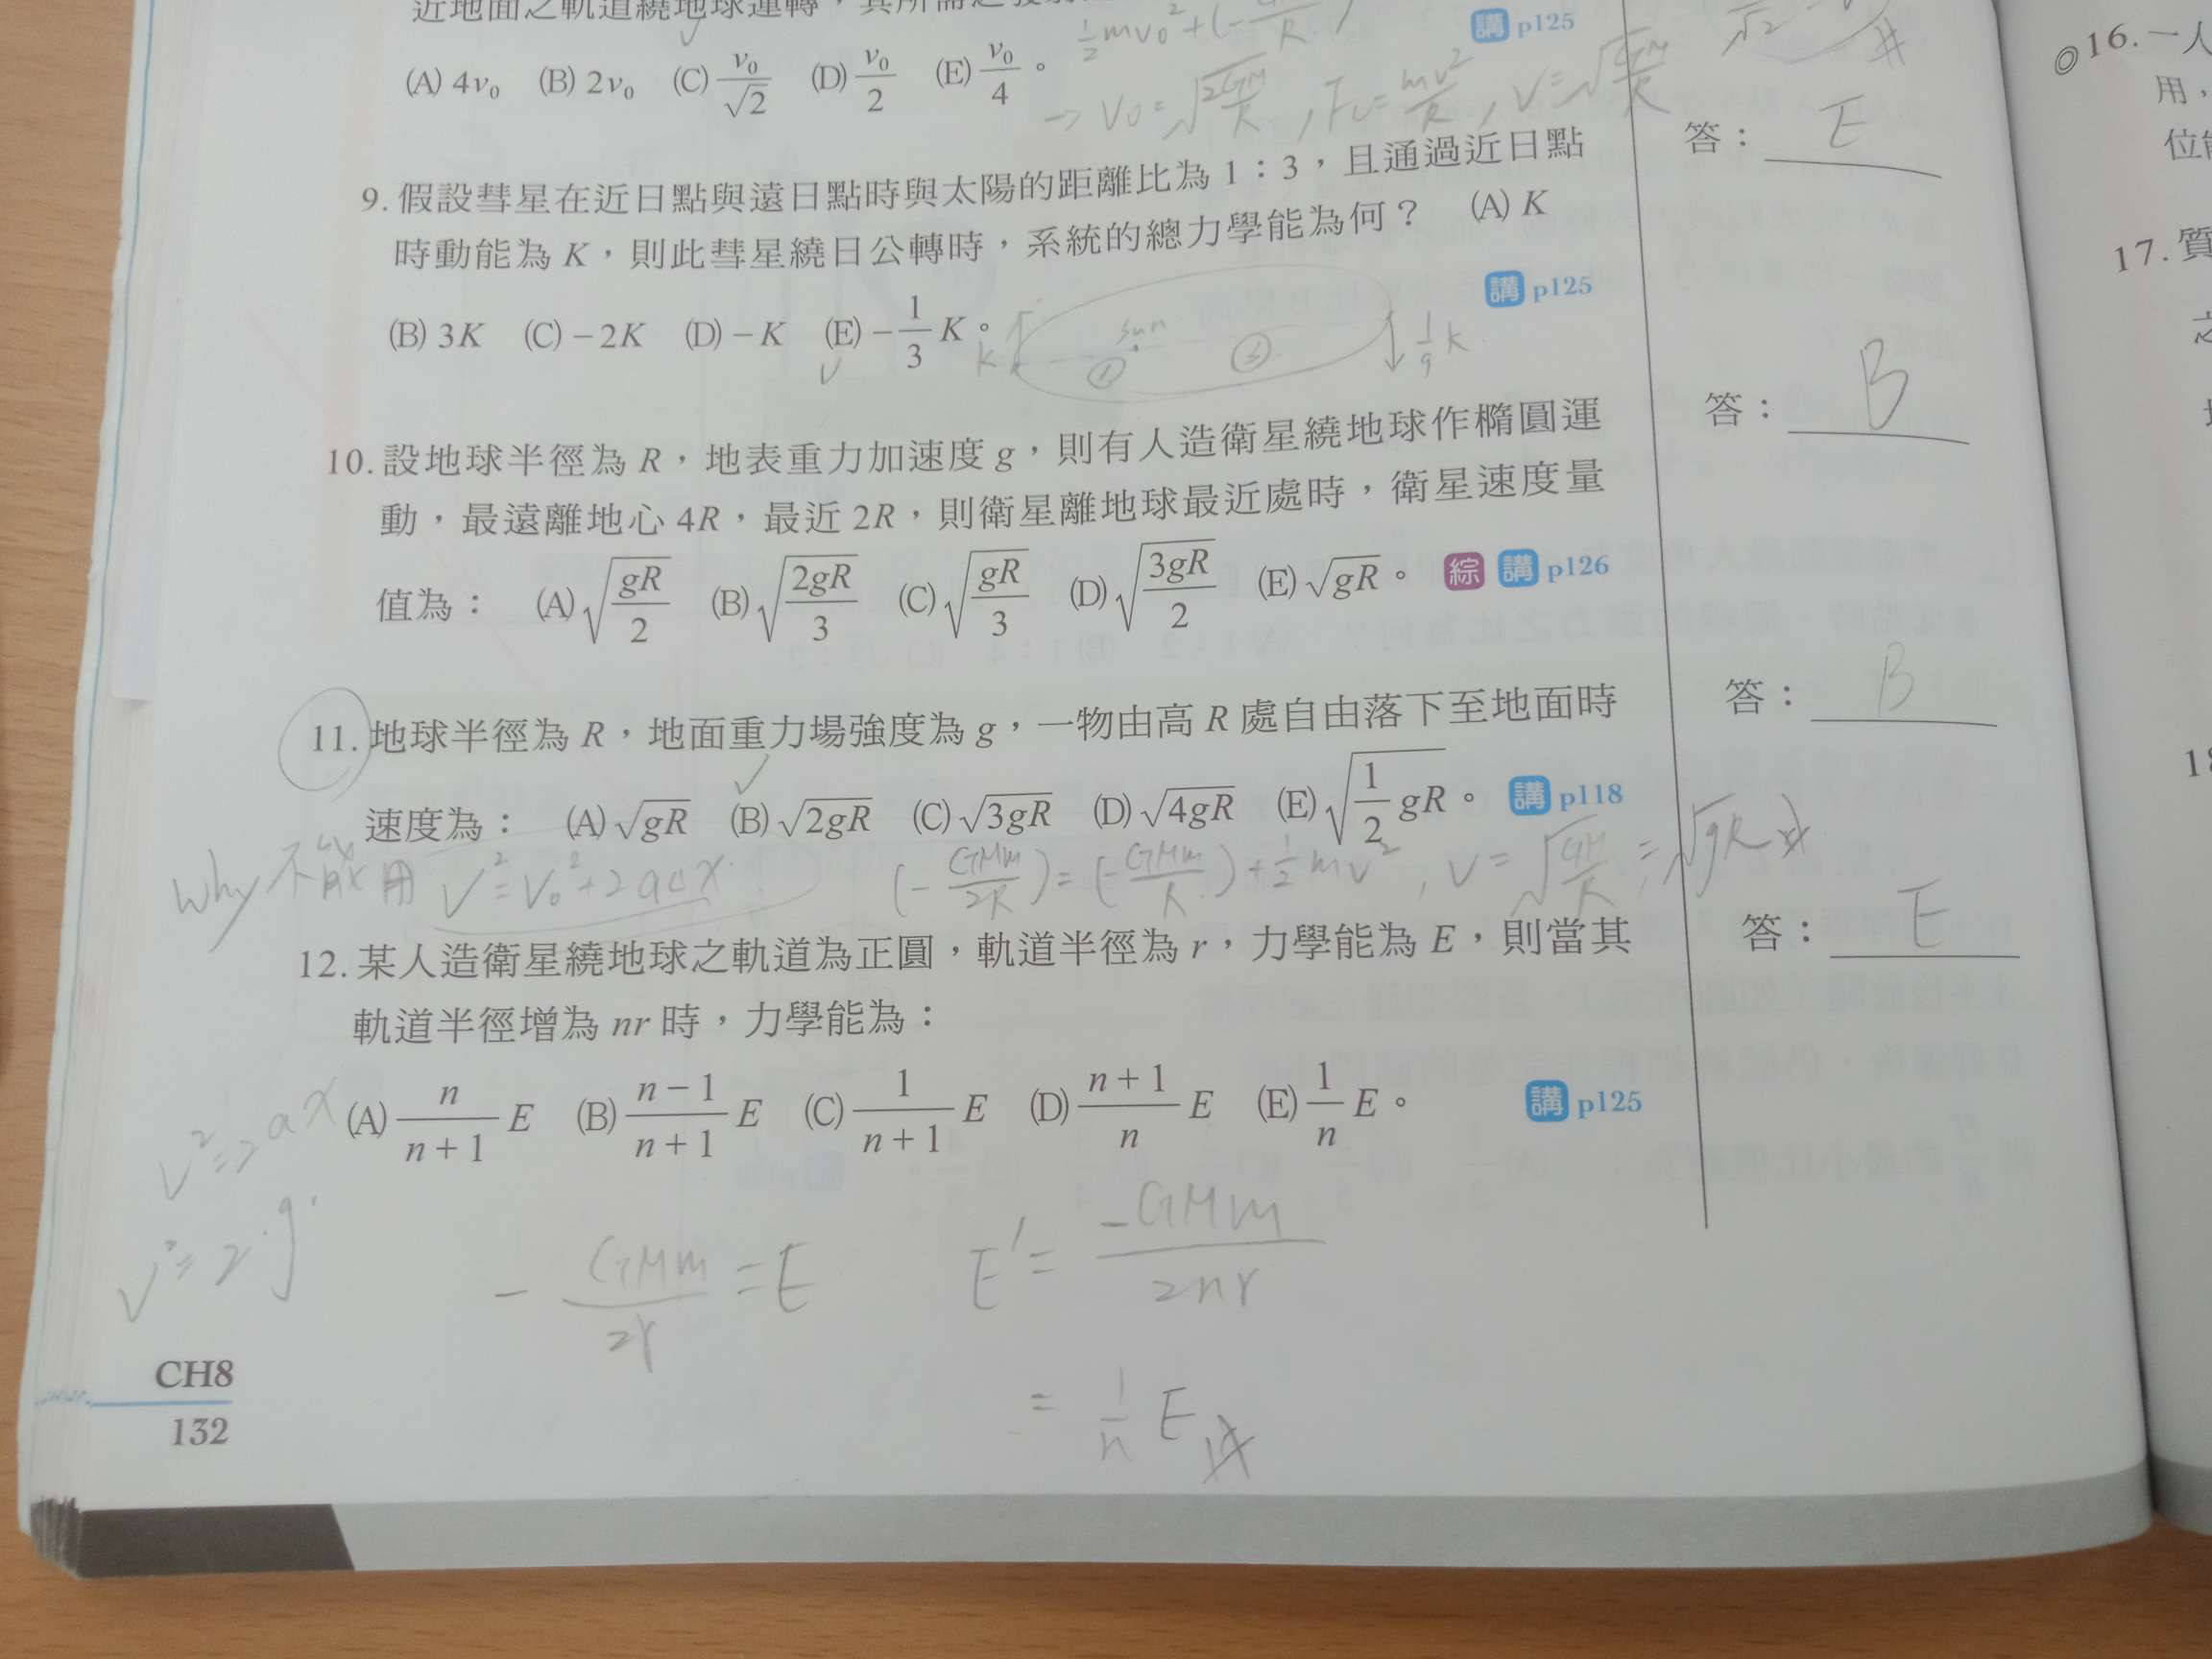 近地面之軌道繞地球運轉，其所需之發射
½mv₀²+(-
講 p125
(A) 4v₀ (B) 2v₀ (C) v₀/√2 (D) v₀/2 (E) v₀/4。
→ V₀=√(2GM/R), Fc=mv²/R, V=√(GM/R)
答：E
9. 假設彗星在近日點與遠日點時與太陽的距離比為 1：3，且通過近日點
時動能為 K，則此彗星繞日公轉時，系統的總力學能為何？ (A) K
講 p125
(B) 3K (C) −2K (D) −K (E) −1/3 K。
K sun ① ③ 1/9 K
答：B
10. 設地球半徑為 R，地表重力加速度 g，則有人造衛星繞地球作橢圓運
動，最遠離地心 4R，最近 2R，則衛星離地球最近處時，衛星速度量
值為： (A) √(gR/2) (B) √(2gR/3) (C) √(gR/3) (D) √(3gR/2) (E) √gR。 綜 講 p126
答：B
11. 地球半徑為 R，地面重力場強度為 g，一物由高 R 處自由落下至地面時
速度為： (A) √gR (B) √2gR (C) √3gR (D) √4gR (E) √(1/2 gR)。 講 p118
why 不能用 V²=V₀²+2aΔx
(-GMm/2R)=(-GMm/R)+½mv², V=√(GM/R)=√gR
答：E
12. 某人造衛星繞地球之軌道為正圓，軌道半徑為 r，力學能為 E，則當其
軌道半徑增為 nr 時，力學能為：
(A) n/(n+1) E (B) (n−1)/(n+1) E (C) 1/(n+1) E (D) (n+1)/n E (E) 1/n E。 講 p125
V²=2ax
V²=2·g·
-GMm/2r=E
E'=-GMm/2nr
=1/n E
CH8
132
16. 一人
用，
位
17. 質
之
18